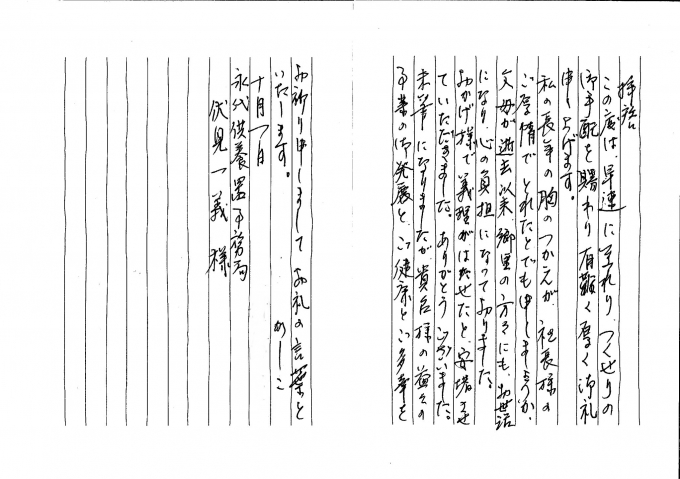 拝啓
この度は、早速に至れり、つくせりの
御手配を賜わり有難く厚く御礼
申し上げます。
私の長年の胸のつかえが、社長様の
ご厚情でとれたとでも申しましょうか、
父母が逝去以来郷里の方々にも、お世話
になり、心の負担になっておりました。
おかげ様で義理がはたせたと、安堵させ
ていただきました。ありがとうございました。
末筆になりましたが、貴台様の益々の
事業の御発展と、ご健康とご多幸を
お祈り申しまして お礼の言葉と
いたします。
かしこ
十月一日
永代供養墓事務局
伏見一義 様